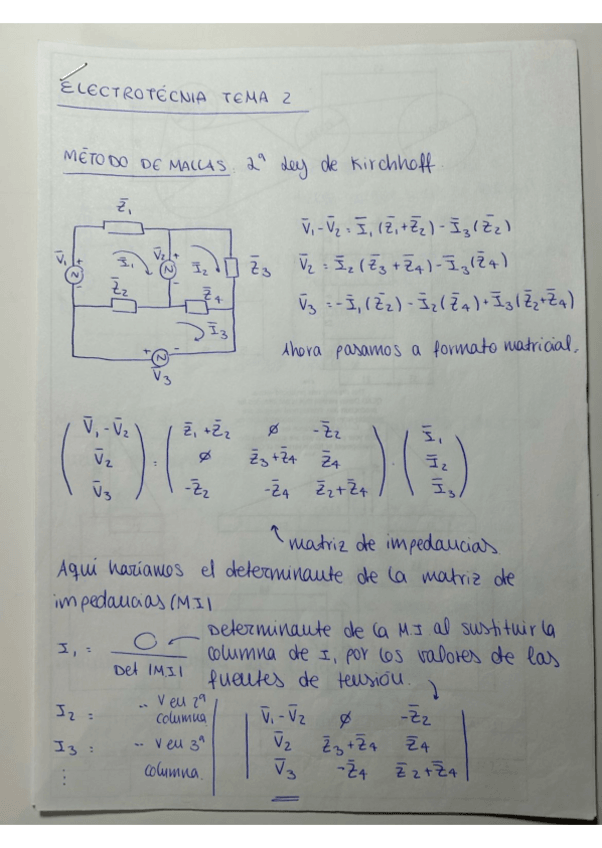 ELECTROTÉCNIA TEMA 2
MÉTODO DE MALLAS. 2ª Ley de Kirchhoff
Z̄₁
V̄₁ + - Ī₁ V̄₂ + - Ī₂ Z̄₃
Z̄₂ Z̄₄
Ī₃
+ -
V̄₃
V̄₁-V̄₂=Ī₁(Z̄₁+Z̄₂)-Ī₃(Z̄₂)
V̄₂=Ī₂(Z̄₃+Z̄₄)-Ī₃(Z̄₄)
V̄₃=-Ī₁(Z̄₂)-Ī₂(Z̄₄)+Ī₃(Z̄₂+Z̄₄)
Ahora pasamos a formato matricial.
( V̄₁-V̄₂ ) = ( Z̄₁+Z̄₂ ∅ -Z̄₂ ) · ( Ī₁ )
( V̄₂ ) ( ∅ Z̄₃+Z̄₄ Z̄₄ ) ( Ī₂ )
( V̄₃ ) ( -Z̄₂ -Z̄₄ Z̄₂+Z̄₄ ) ( Ī₃ )
matriz de impedancias.
Aqui hariamos el determinante de la matriz de
impedancias (MI)
I₁ = O / Det |M.I|
Determinante de la MI al sustituir la
columna de I₁ por los valores de las
fuentes de tensión.
I₂ = -- V en 2ª
columna
I₃ = -- V en 3ª
columna.
⋮
| V̄₁-V̄₂ ∅ -Z̄₂ |
| V̄₂ Z̄₃+Z̄₄ Z̄₄ |
| V̄₃ -Z̄₄ Z̄₂+Z̄₄ |